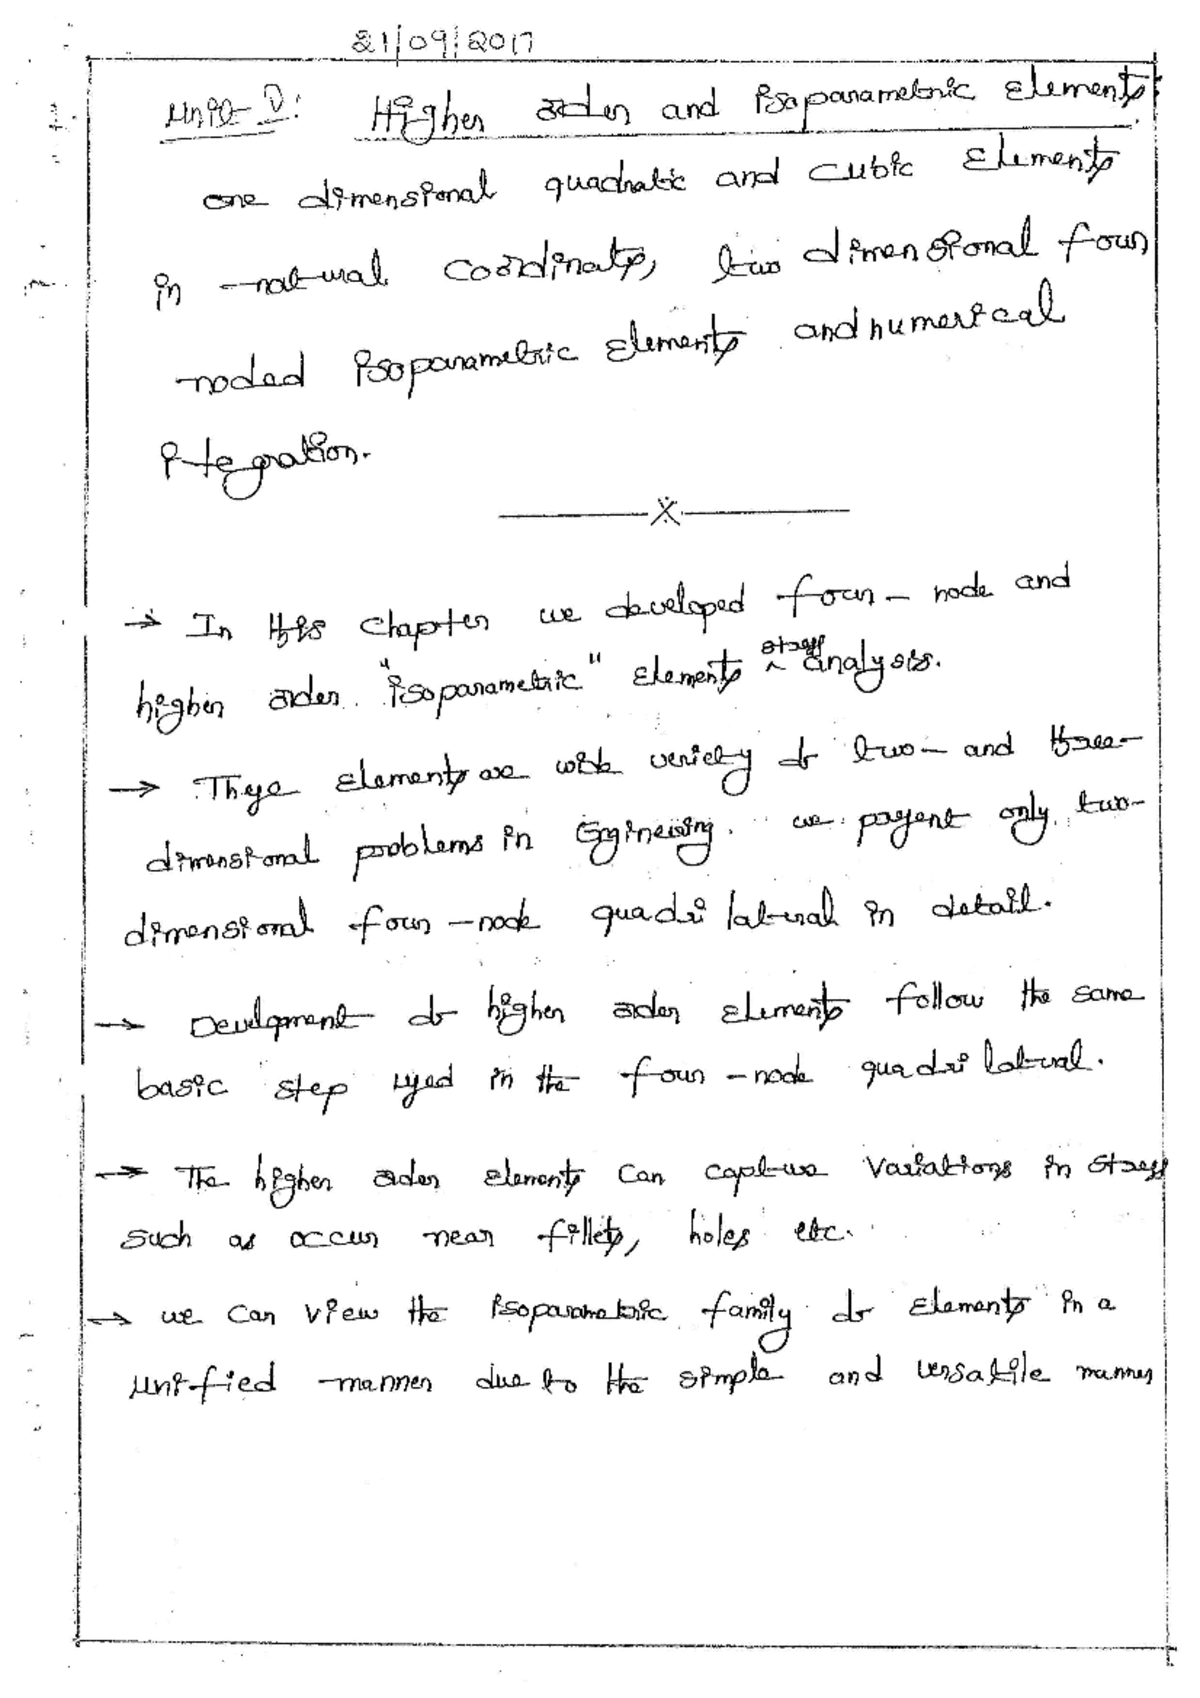 21/09/2017
Unit-V: Higher order and Isoparametric Elements:
one dimensional quadratic and cubic Elements
in natural coordinates, two dimensional four
noded isoparametric Elements and numerical
integration.
X
→ In this chapter we developed four - node and
higher order "isoparametric" Elements ^ stress analysis.
→ These Elements are with veriety of two - and three-
dimensional problems in Engineering. we present only two-
dimensional four - node quadrilateral in detail.
→ Development of higher order Elements follow the same
basic step used in the four - node quadrilateral.
→ The higher order elements can capture variations in stress
such as occur near fillets, holes etc.
→ we can view the isoparametric family of Elements in a
unified manner due to the simple and versatile manner